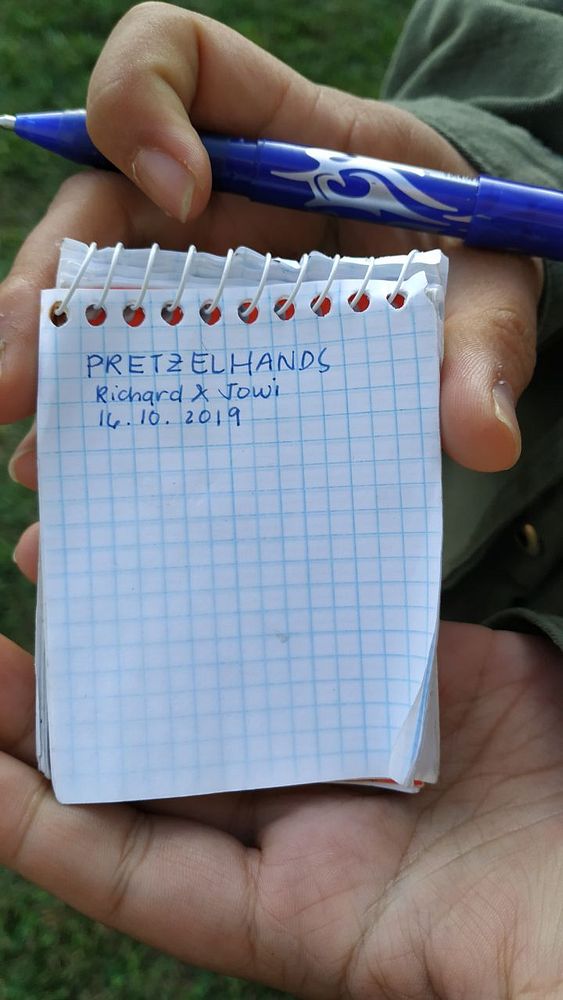 PRETZELHANDS
Richard X Jowi
16.10.2019